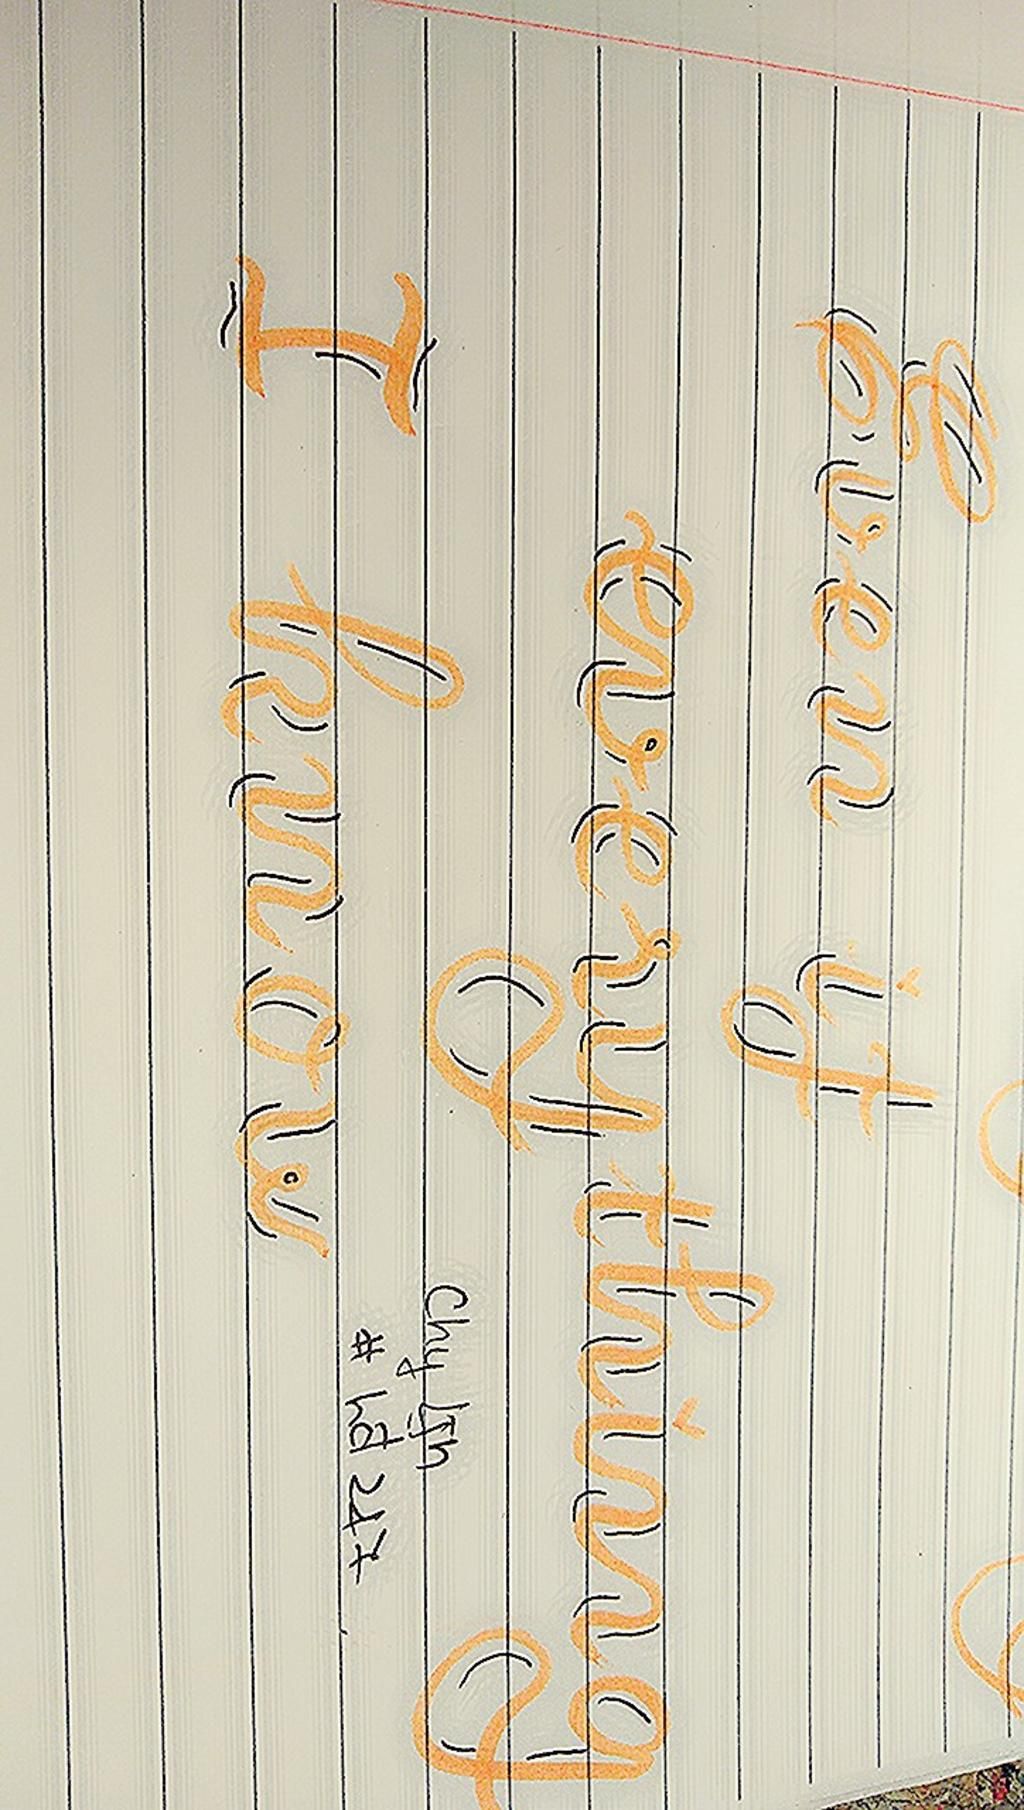 Even if
everything
I know
Chy Linh
# hd 247